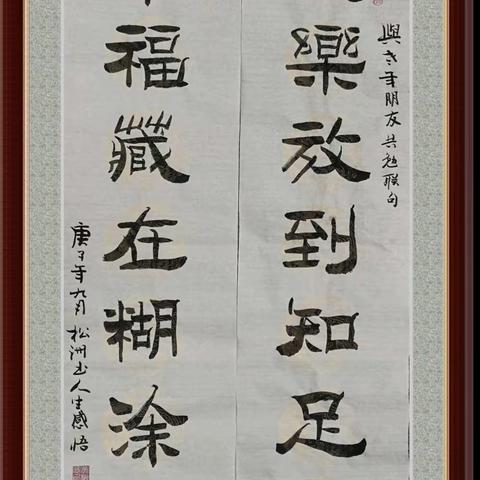 與老年朋友共勉聯句
樂放到知足
福藏在糊涂
庚子年九月 松洲书人生感悟